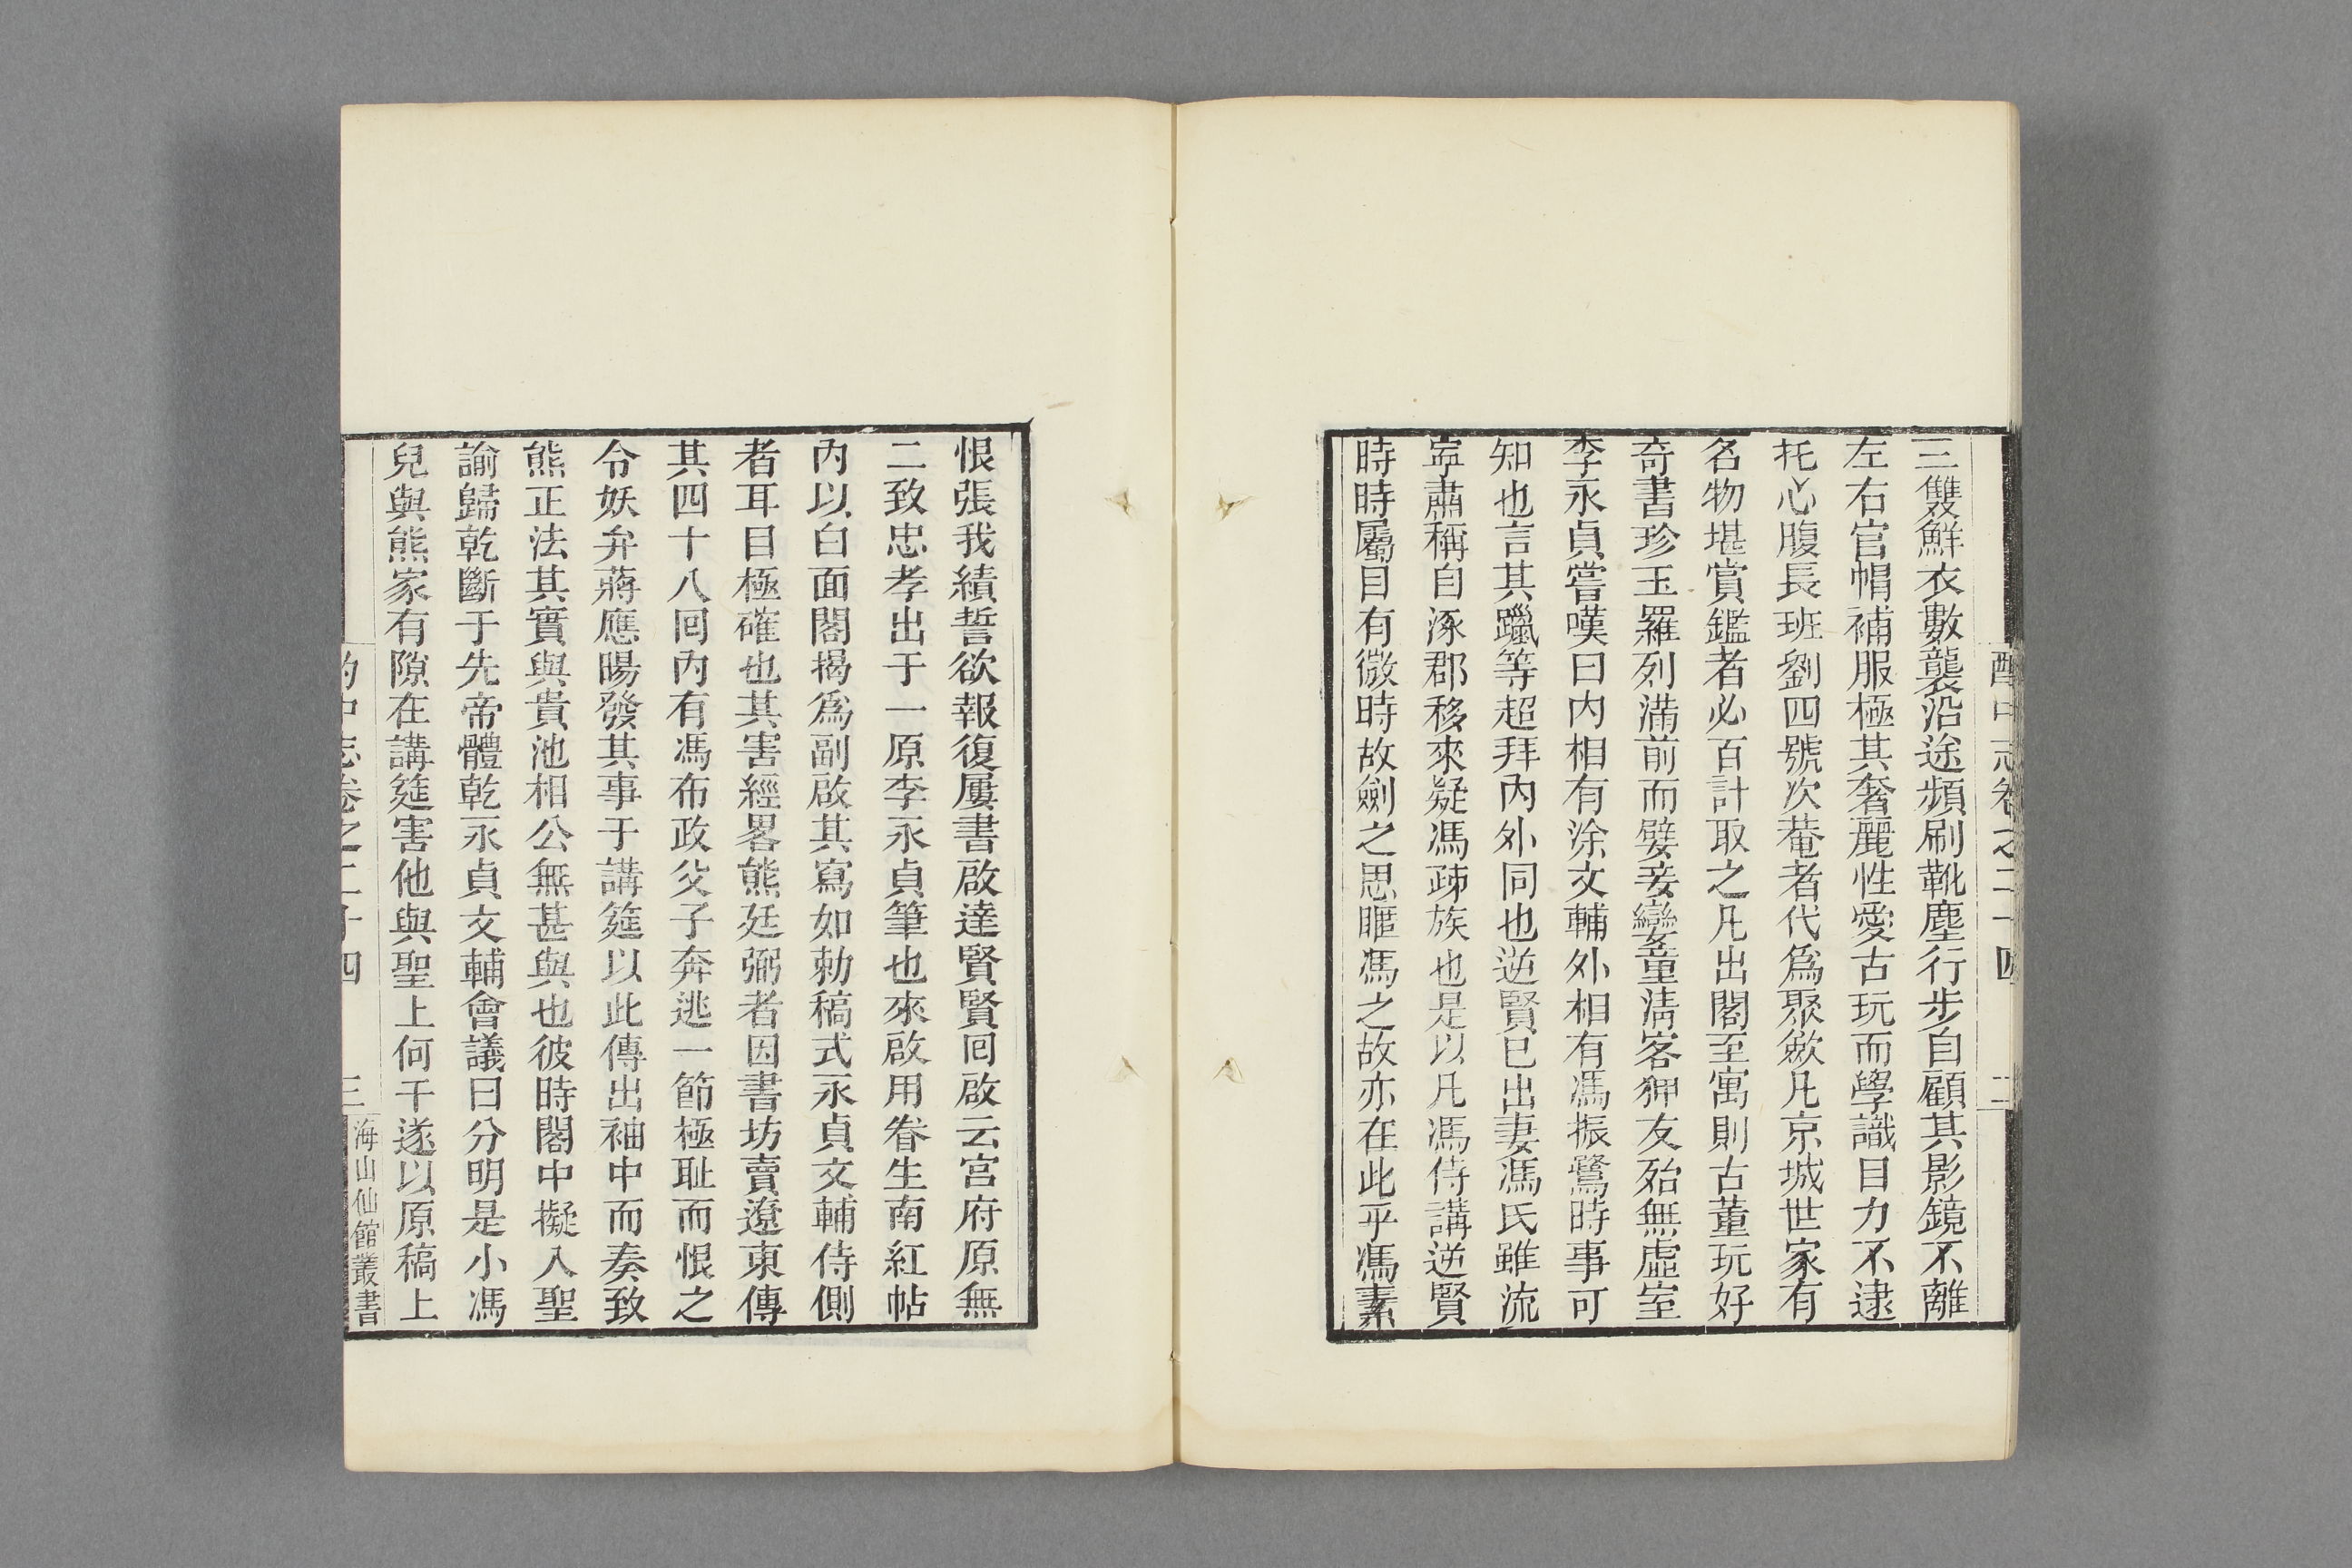 酌中志卷之二十四
二
三雙鮮衣數襲沿途頻刷靴塵行步自顧其影鏡不離
左右官帽補服極其奢麗性愛古玩而學識目力不逮
托心腹長班劉四號次菴者代爲聚歛凡京城世家有
名物堪賞鑑者必百計取之凡出閣至寓則古董玩好
奇書珍玉羅列滿前而嬖妾孌童淸客狎友殆無虛室
李永貞嘗嘆曰內相有涂文輔外相有馮振鷺時事可
知也言其躐等超拜內外同也逆賢已出妻馮氏雖流
寧肅稱自涿郡移來疑馮疏族也是以凡馮侍講逆賢
時時屬目有微時故劍之思暱馮之故亦在此乎馮素
恨張我績誓欲報復屢書啟達賢賢回啟云宮府原無
二致忠孝出于一原李永貞筆也來啟用眷生南紅帖
內以白面閣揭爲副啟其寫如勅稿式永貞文輔侍側
者耳目極確也其害經畧熊廷弼者因書坊賣遼東傳
其四十八回內有馮布政父子奔逃一節極耻而恨之
令妖弁蔣應暘發其事于講筵以此傳出袖中而奏致
熊正法其實與貴池相公無甚與也彼時閣中擬入聖
諭歸乾斷于先帝體乾永貞文輔會議曰分明是小馮
兒與熊家有隙在講筵害他與聖上何干遂以原稿上
酌中志卷之二十四
三
海山仙館叢書